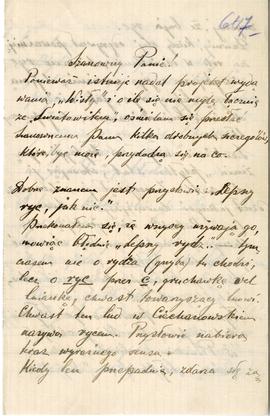 647
Szanowny Panie!
Ponieważ istnieje nadal projekt wyda
wania „Wisły” i o ile się nie mylę łącznie
ze „Światowidem”, ośmielam się przesłać
Szanownemu Panu kilka drobnych szczegółów,
które, być może, przydadzą się na co.
Dobrze znanem jest przysłowie: „Lepszy
ryc, jak nic.”
Przekonałem się, że wszyscy używają go,
mówiąc błędnie „lepszy rydz” — tym
czasem nie o rydza (grzyba) tu chodzi,
lecz o ryc przez c,
chwast towarzyszący lnowi.
Chwast ten lud w Ciechanowskiem
nazywa rycem. Przysłowie nabiera
teraz wyraźnego sensu.
Kiedy len przepadnie, zdarza się, że